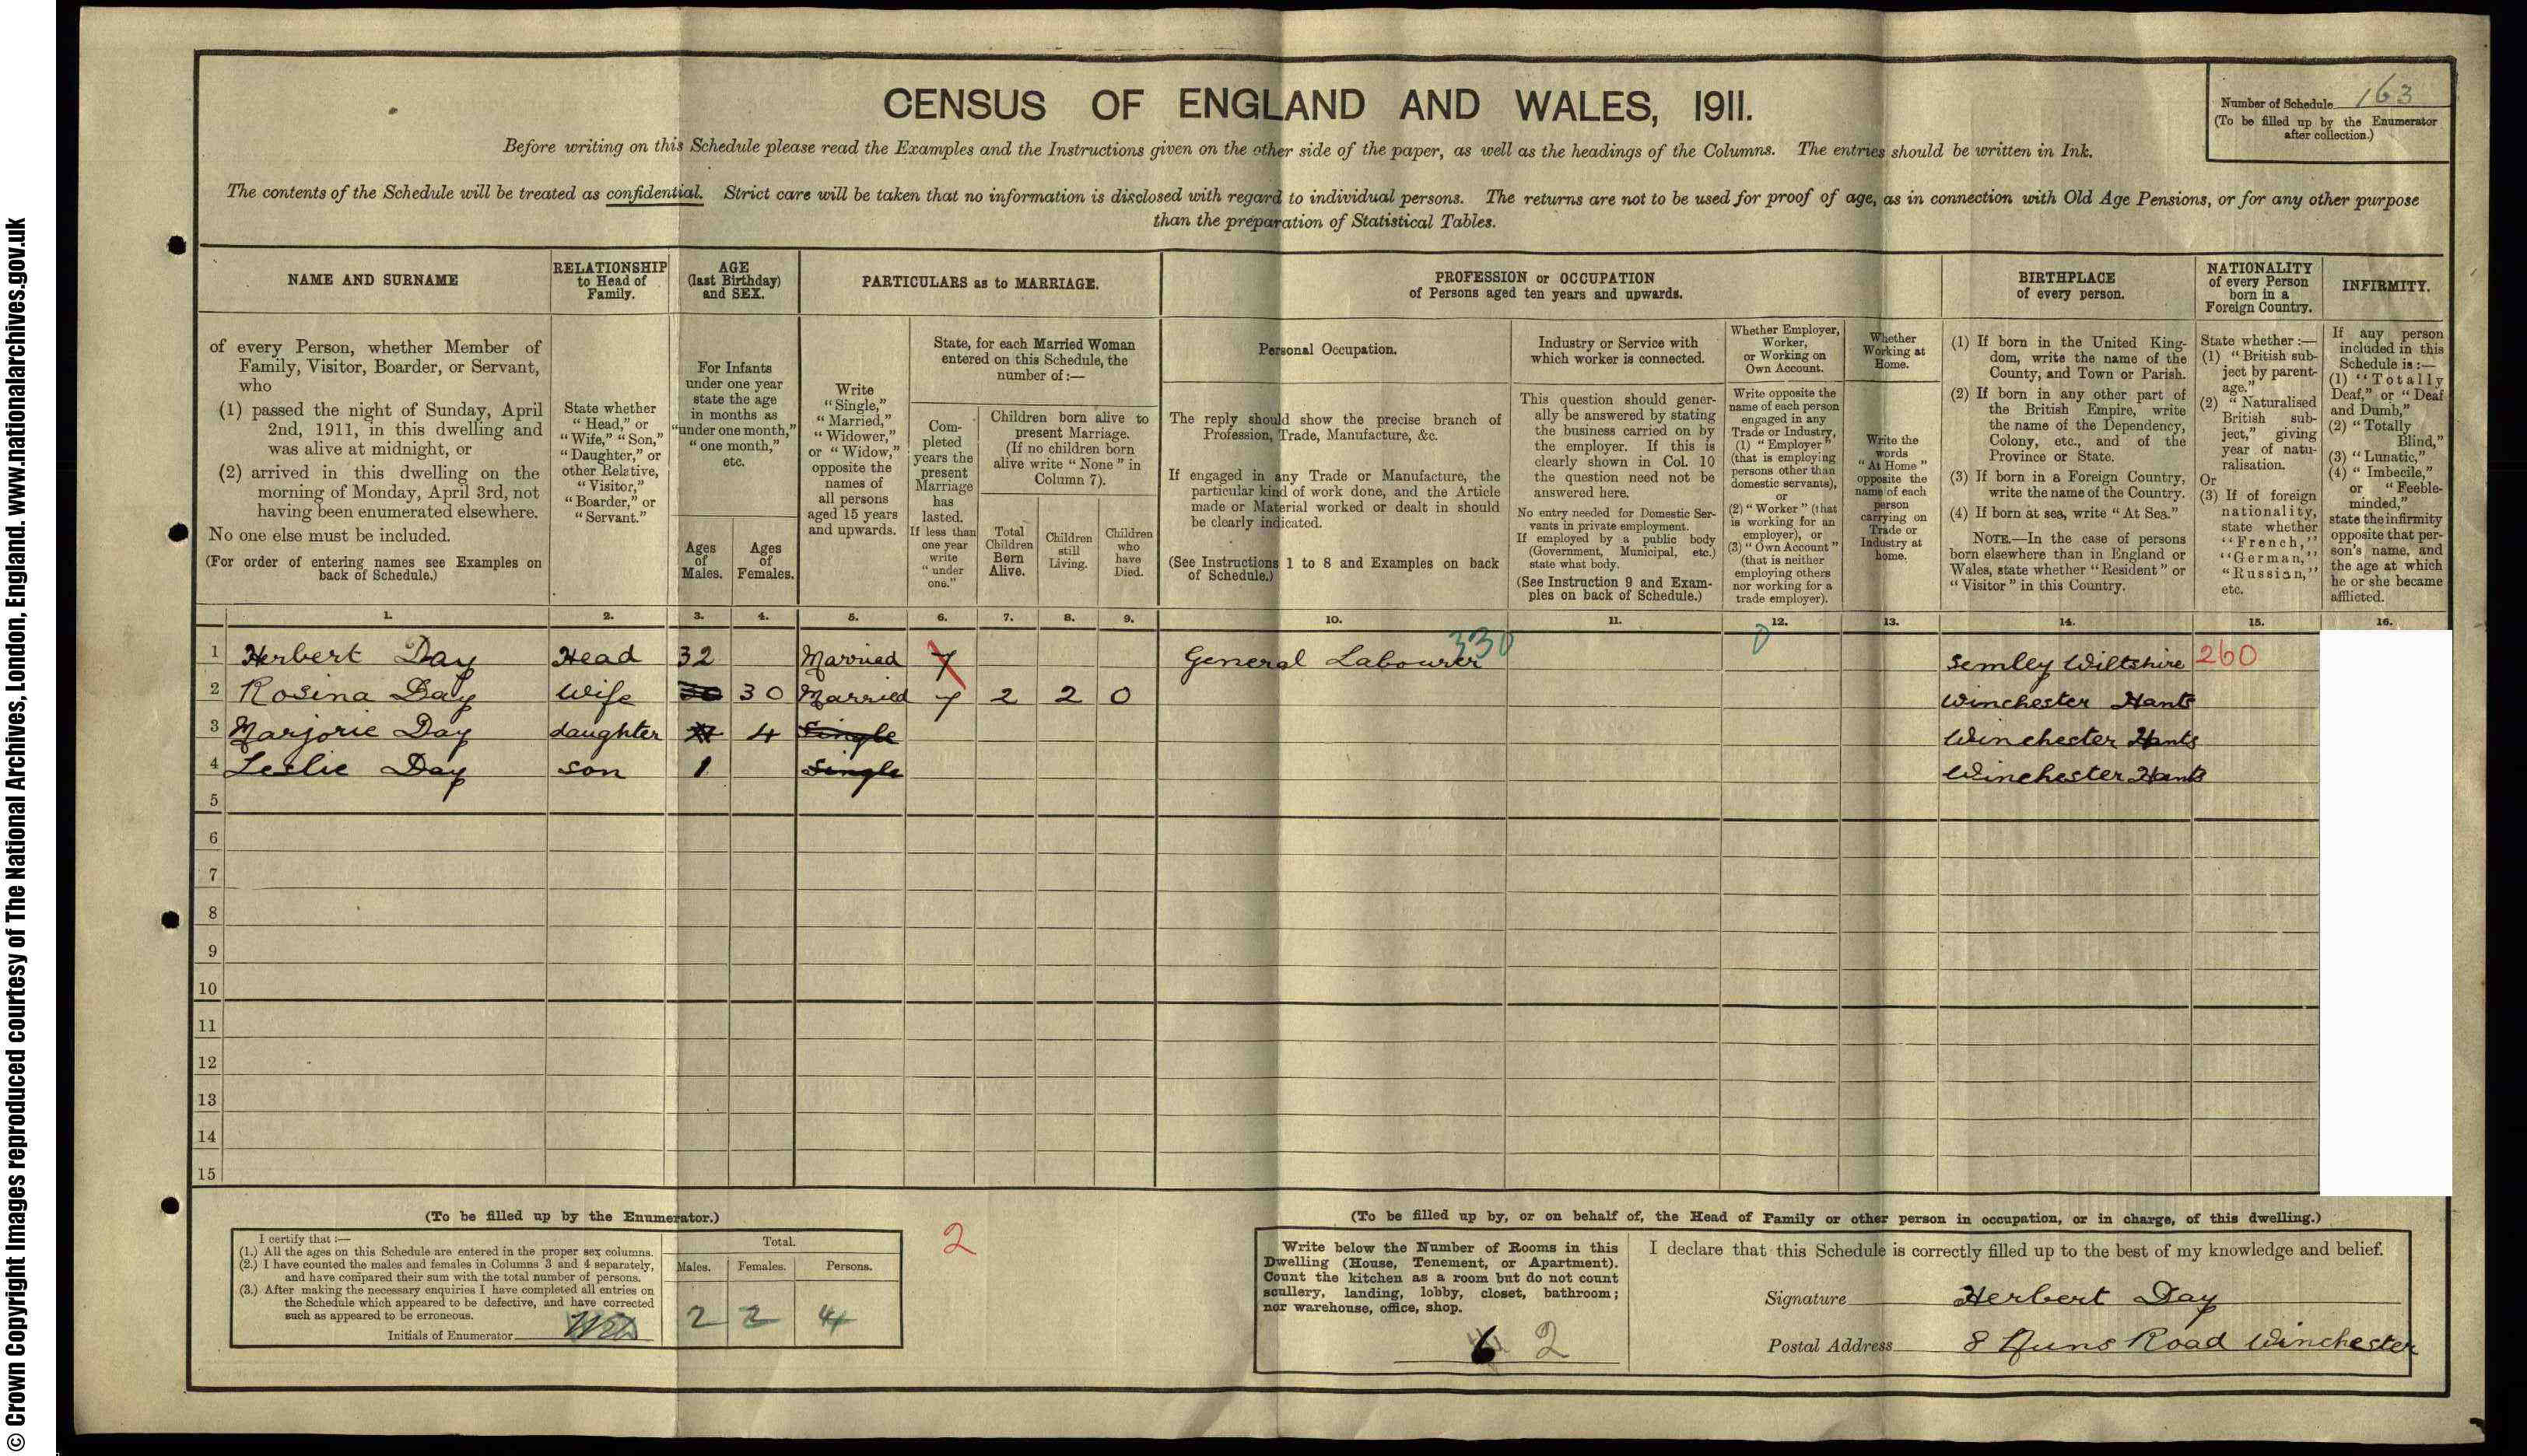 © Crown Copyright Images reproduced courtesy of The National Archives, London, England. www.nationalarchives.gov.uk
CENSUS OF ENGLAND AND WALES, 1911.
Number of Schedule 163
(To be filled up by the Enumerator
after collection.)
Before writing on this Schedule please read the Examples and the Instructions given on the other side of the paper, as well as the headings of the Columns. The entries should be written in Ink.
The contents of the Schedule will be treated as confidential. Strict care will be taken that no information is disclosed with regard to individual persons. The returns are not to be used for proof of age, as in connection with Old Age Pensions, or for any other purpose
than the preparation of Statistical Tables.
NAME AND SURNAME
of every Person, whether Member of
Family, Visitor, Boarder, or Servant,
who
(1) passed the night of Sunday, April
2nd, 1911, in this dwelling and
was alive at midnight, or
(2) arrived in this dwelling on the
morning of Monday, April 3rd, not
having been enumerated elsewhere.
No one else must be included.
(For order of entering names see Examples on
back of Schedule.)
RELATIONSHIP
to Head of
Family.
State whether
"Head," or
"Wife," "Son,"
"Daughter," or
other Relative,
"Visitor,"
"Boarder," or
"Servant."
AGE
(last Birthday)
and SEX.
For Infants
under one year
state the age
in months as
"under one month,"
"one month,"
etc.
Ages
of
Males.
Ages
of
Females.
PARTICULARS as to MARRIAGE.
Write
"Single,"
"Married,"
"Widower,"
or "Widow,"
opposite the
names of
all persons
aged 15 years
and upwards.
State, for each Married Woman
entered on this Schedule, the
number of:—
Com-
pleted
years the
present
Marriage
has
lasted.
If less than
one year
write
"under
one."
Children born alive to
present Marriage.
(If no children born
alive write "None" in
Column 7).
Total
Children
Born
Alive.
Children
still
Living.
Children
who
have
Died.
PROFESSION or OCCUPATION
of Persons aged ten years and upwards.
Personal Occupation.
The reply should show the precise branch of
Profession, Trade, Manufacture, &c.
If engaged in any Trade or Manufacture, the
particular kind of work done, and the Article
made or Material worked or dealt in should
be clearly indicated.
(See Instructions 1 to 8 and Examples on back
of Schedule.)
Industry or Service with
which worker is connected.
This question should gener-
ally be answered by stating
the business carried on by
the employer. If this is
clearly shown in Col. 10
the question need not be
answered here.
No entry needed for Domestic Ser-
vants in private employment.
If employed by a public body
(Government, Municipal, etc.)
state what body.
(See Instruction 9 and Exam-
ples on back of Schedule.)
Whether Employer,
Worker,
or Working on
Own Account.
Write opposite the
name of each person
engaged in any
Trade or Industry,
(1) "Employer"
(that is employing
persons other than
domestic servants),
or
(2) "Worker" (that
is working for an
employer), or
(3) "Own Account"
(that is neither
employing others
nor working for a
trade employer).
Whether
Working at
Home.
Write the
words
"At Home"
opposite the
name of each
person
carrying on
Trade or
Industry at
home.
BIRTHPLACE
of every person.
(1) If born in the United King-
dom, write the name of the
County, and Town or Parish.
(2) If born in any other part of
the British Empire, write
the name of the Dependency,
Colony, etc., and of the
Province or State.
(3) If born in a Foreign Country,
write the name of the Country.
(4) If born at sea, write "At Sea."
NOTE.—In the case of persons
born elsewhere than in England or
Wales, state whether "Resident" or
"Visitor" in this Country.
NATIONALITY
of every Person
born in a
Foreign Country.
State whether:—
(1) "British sub-
ject by parent-
age."
(2) "Naturalised
British sub-
ject," giving
year of natu-
ralisation.
Or
(3) If of foreign
nationality,
state whether
"French,"
"German,"
"Russian,"
etc.
INFIRMITY.
If any person
included in this
Schedule is:—
(1) "Totally
Deaf," or "Deaf
and Dumb,"
(2) "Totally
Blind,"
(3) "Lunatic,"
(4) "Imbecile,"
or "Feeble-
minded,"
state the infirmity
opposite that per-
son's name, and
the age at which
he or she became
afflicted.
1. 2. 3. 4. 5. 6. 7. 8. 9. 10. 11. 12. 13. 14. 15. 16.
1 Herbert Day Head 32 Married 7 General Labourer 330 0 Semley Wiltshire 260
2 Rosina Day Wife 30 30 Married 7 2 2 0 Winchester Hants
3 Marjorie Day daughter 4 Single Winchester Hants
4 Leslie Day son 1 Single Winchester Hants
5
6
7
8
9
10
11
12
13
14
15
(To be filled up by the Enumerator.)
I certify that:—
(1.) All the ages on this Schedule are entered in the proper sex columns.
(2.) I have counted the males and females in Columns 3 and 4 separately,
and have compared their sum with the total number of persons.
(3.) After making the necessary enquiries I have completed all entries on
the Schedule which appeared to be defective, and have corrected
such as appeared to be erroneous.
Initials of Enumerator
Total.
Males. Females. Persons.
2 2 4
2
(To be filled up by, or on behalf of, the Head of Family or other person in occupation, or in charge, of this dwelling.)
Write below the Number of Rooms in this
Dwelling (House, Tenement, or Apartment).
Count the kitchen as a room but do not count
scullery, landing, lobby, closet, bathroom;
nor warehouse, office, shop.
6 2
I declare that this Schedule is correctly filled up to the best of my knowledge and belief.
Signature Herbert Day
Postal Address 8 Nuns Road Winchester